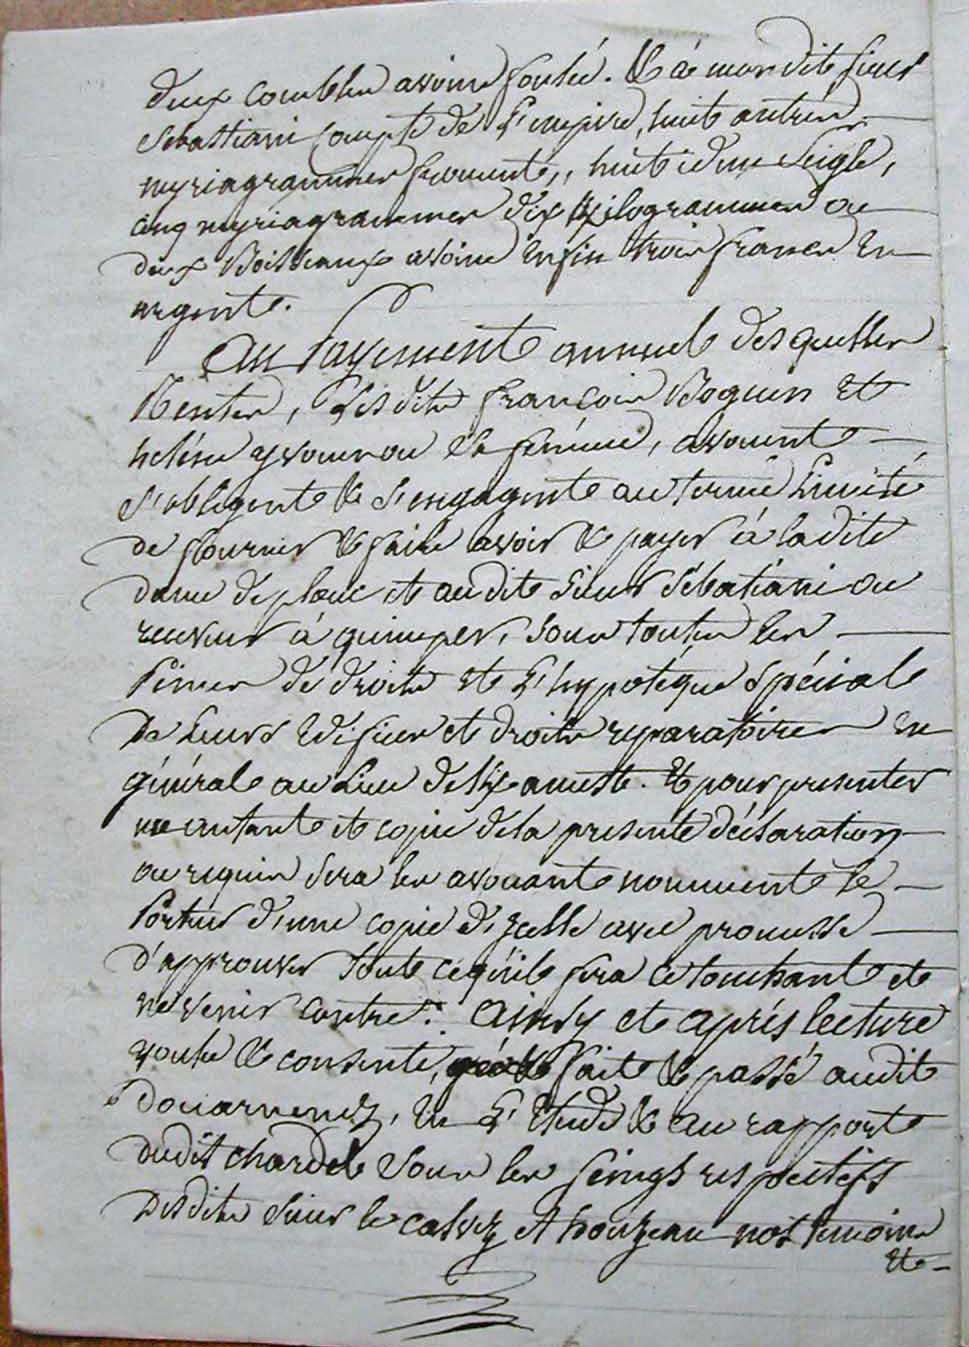 deux combles avoine foulé. Et à mondit sieur
Sebastiani Compte de L'empire, huit autres
myriagrammes froment, huit idem Seigle,
cinq myriagrammes dix Kilogrammes ou
deux Boisseaux avoine enfin trois francs en
argent.
Au Payement annuel desquelles
Rentes, Lesdits françois Boguen et
heléne yvournou Sa femme, avouent
S'obligent & S'engagent au terme Limité
de fournir & faire avoir & payer à ladite
dame de ploeuc et audit Sieur Sébatiani ou
receveur à quimper, Sous toutes les
Peines de droits et L'hypotéque Spéciale
De Leurs Edifices et droits reparatoires en
général au Lieu de . Et pour presenter
un autant et copie de la presente déclaration
ou requis Sera les avouants nomment le
Porteur d'une copie d'ycelle avec promesse
d'approuver toute ce qu'il fera ce touchant et
ne venir contre. Ainsy et aprés lecture
voulu & consenti, fait & passé audit
Douarnenez, En L'Etude & au rapport
dudit chardel Sous les Seings respectifs
Desdits Sieur le calvez et houzeau nos temoins
Et